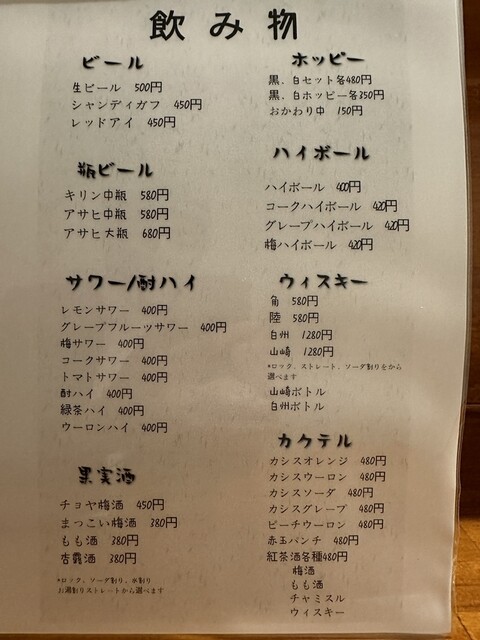 飲み物
ビール
生ビール 500円
シャンディガフ 450円
レッドアイ 450円
瓶ビール
キリン中瓶 580円
アサヒ中瓶 580円
アサヒ大瓶 680円
サワー/酎ハイ
レモンサワー 400円
グレープフルーツサワー 400円
梅サワー 400円
コークサワー 400円
トマトサワー 400円
酎ハイ 400円
緑茶ハイ 400円
ウーロンハイ 400円
果実酒
チョヤ梅酒 450円
まっこい梅酒 380円
もも酒 380円
杏露酒 380円
*ロック、ソーダ割り、水割り
お湯割りストレートから選べます
ホッピー
黒、白セット各480円
黒、白ホッピー各350円
おかわり中 150円
ハイボール
ハイボール 400円
コークハイボール 420円
グレープハイボール 420円
梅ハイボール 420円
ウィスキー
角 580円
陸 580円
白州 1280円
山崎 1280円
*ロック、ストレート、ソーダ割りをから
選べます
山崎ボトル
白州ボトル
カクテル
カシスオレンジ 480円
カシスウーロン 480円
カシスソーダ 480円
カシスグレープ 480円
ピーチウーロン 480円
赤玉パンチ 480円
紅茶酒各種480円
梅酒
もも酒
チャミスル
ウィスキー